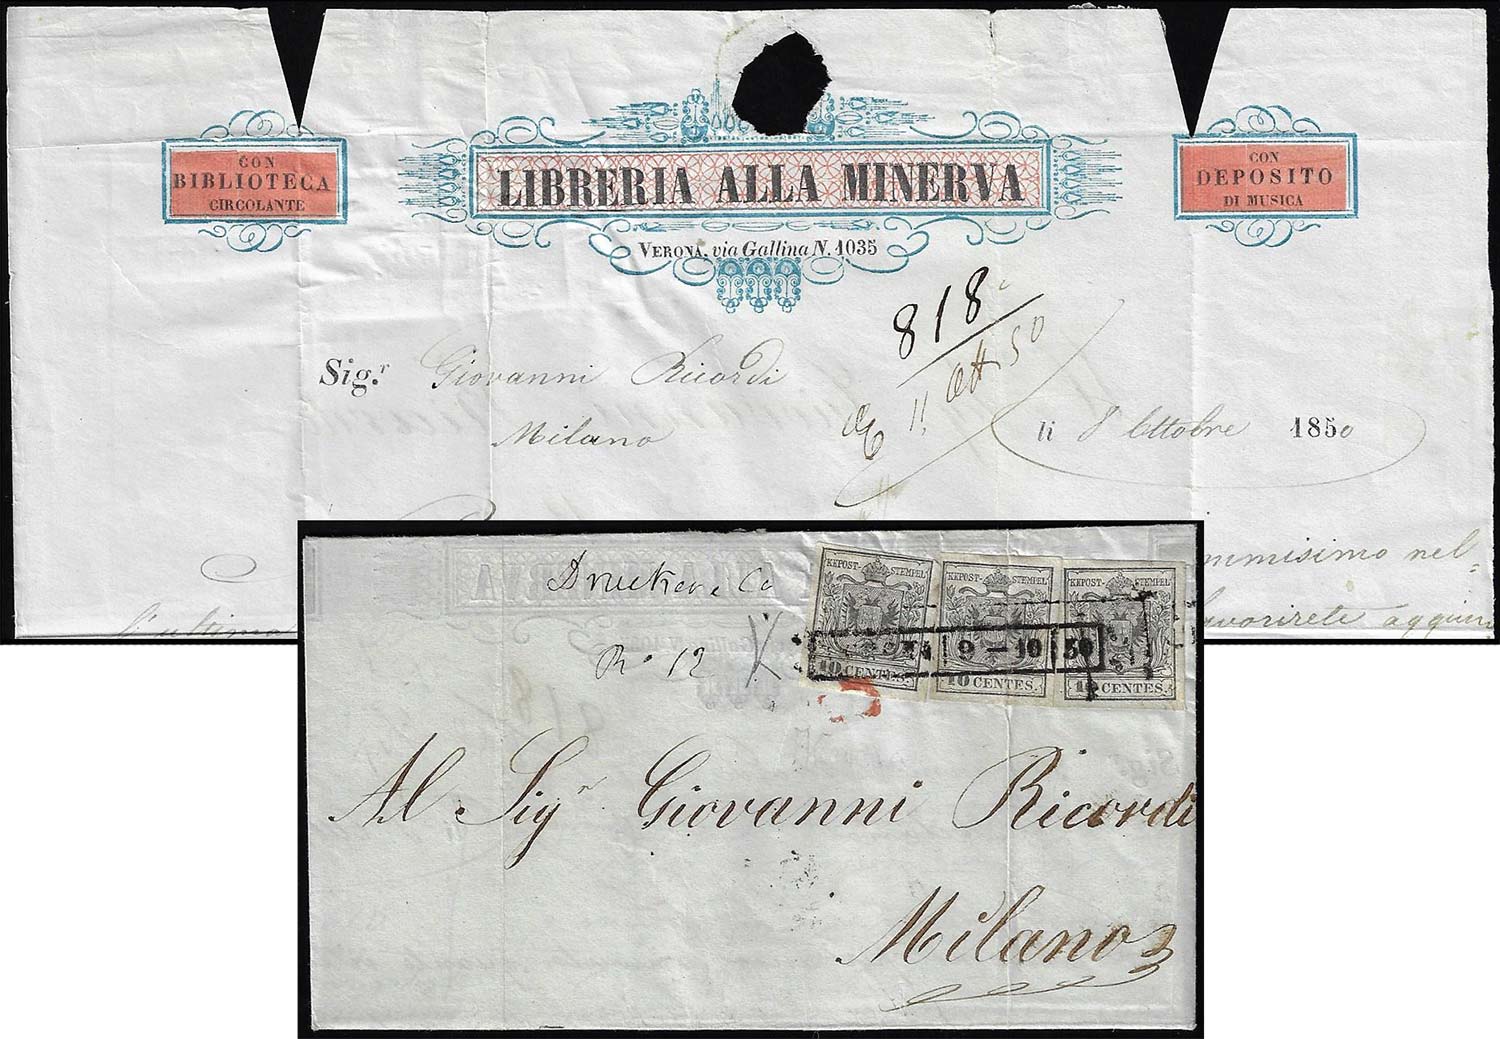 CON
BIBLIOTECA
CIRCOLANTE
LIBRERIA ALLA MINERVA
VERONA, via Gallina N. 1035
CON
DEPOSITO
DI MUSICA
818
11 Ott 50
Sig.r Giovanni Ricordi
Milano
li 8 Ottobre 1850
l'ultima
favorirete
Drucker e Co
R. 12
KKPOST-STEMPEL
10 CENTES.
KKPOST-STEMPEL
10 CENTES.
KKPOST-STEMPEL
10 CENTES.
9-10 50
Al Sigr Giovanni Ricordi
Milano